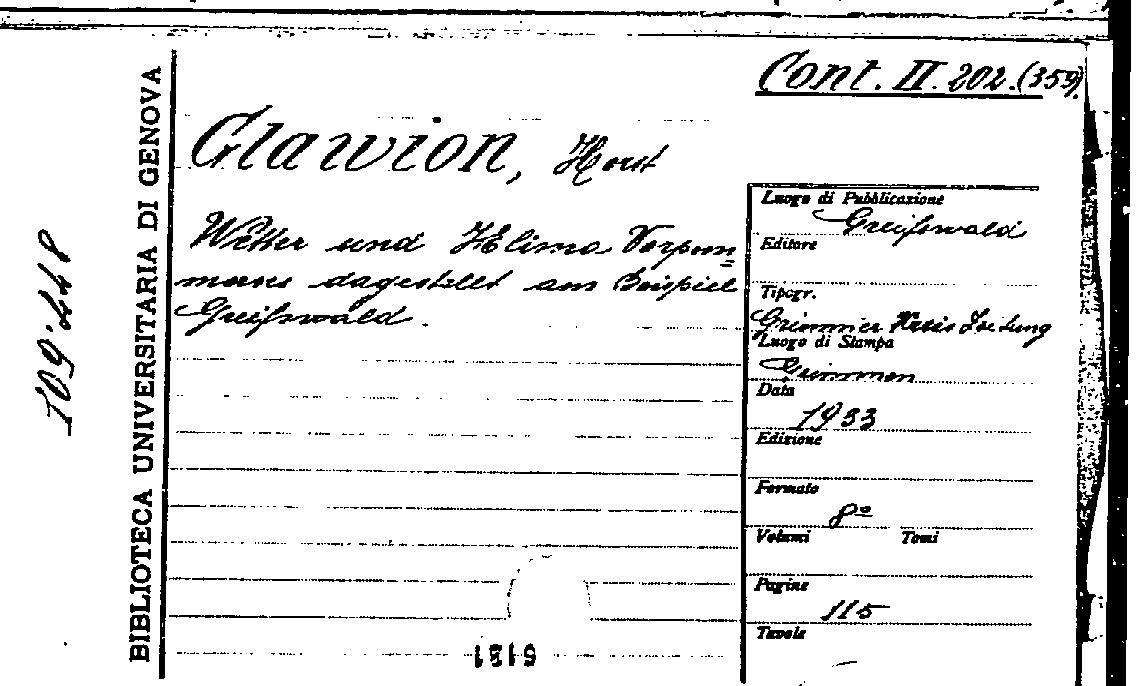 Cont. II. 202.(359).
BIBLIOTECA UNIVERSITARIA DI GENOVA
109.448
Glawion, Horst
Wetter und Klima Vorpom=
merns dagestellt am Beispiel
Greifswald.
Luogo di Pubblicazione
Greifswald
Editore
Tipogr.
Grimmer Kreis Zeitung
Luogo di Stampa
Grimmen
Data
1933
Edizione
Formato
8º
Volumi Tomi
Pagine
115
Tavole